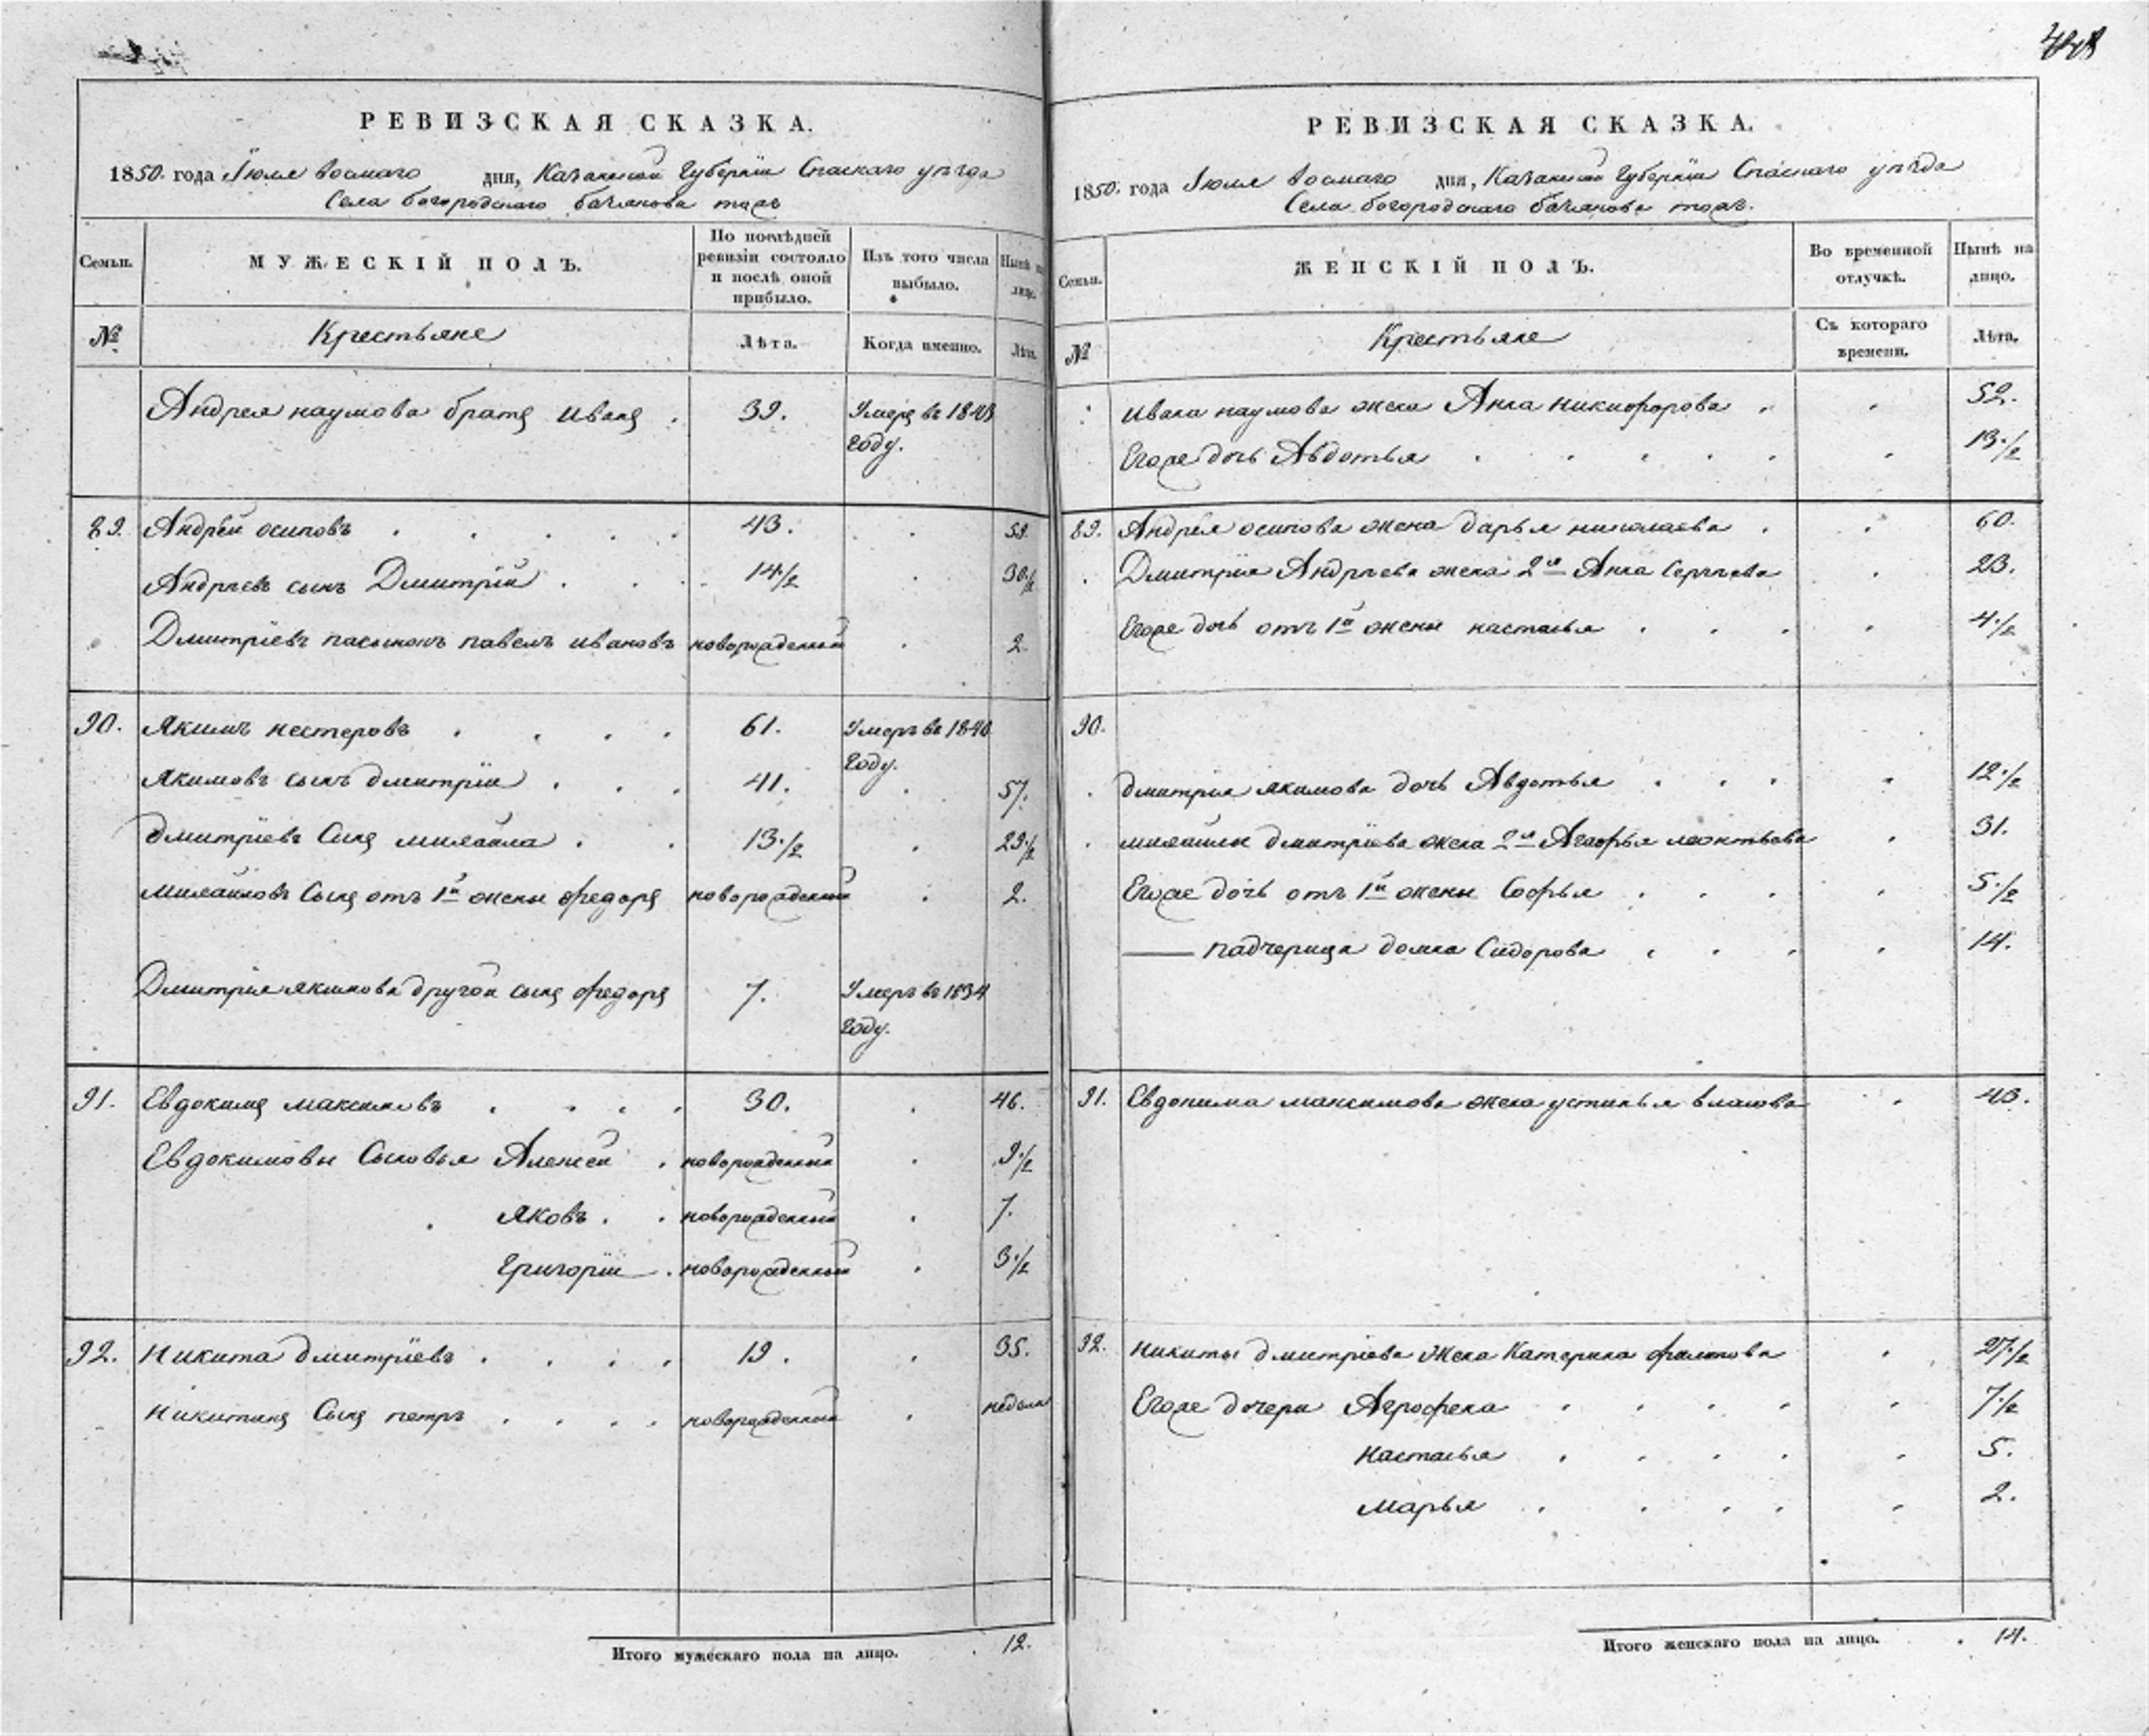 РЕВИЗСКАЯ СКАЗКА.
1850. года Іюля восмаго дня, Казанской Губерніи Спаскаго уѣзда
Села богородскаго
Семьи.
МУЖЕСКІЙ ПОЛЪ.
По послѣдней ревизіи состояло и послѣ оной прибыло.
Изъ того числа выбыло.
Нынѣ на лицо.
№
Крестьяне
Лѣта.
Когда именно.
Лѣта.
Андрея наумова братъ иванъ 39. Умеръ въ
году.
89. Андрей осиповъ 43. 59.
Андрѣевъ сынъ Дмитрій 14 1/2 30 1/2
Дмитріевъ пасынокъ павелъ ивановъ новорожденный 2.
90. Якимъ нестеровъ 61. Умеръ въ 1840
году.
Якимовъ сынъ дмитрій 41. 57.
Дмитріевъ Сынъ михайла 13 1/2 29 1/2
михайловъ Сынъ отъ 1й жены федоръ новорожденный 2.
Дмитрія якимова другой сынъ федоръ 7. Умеръ въ 1834
году.
91. Евдокимъ максимовъ 30. 46.
Евдокимовы Сыновья Алексей новорожденный 9 1/2
яковъ новорожденный 7.
григорій новорожденный 3 1/2
92. никита дмитріевъ 19. 35.
никитинъ Сынъ петръ новорожденный недели
Итого мужескаго пола на лицо. 12.
448
РЕВИЗСКАЯ СКАЗКА.
1850. года Іюля восмаго дня, Казанской Губерніи Спаскаго уѣзда
Села богородскаго
Семьи.
ЖЕНСКІЙ ПОЛЪ.
Во временной отлучкѣ.
Нынѣ на лицо.
№
Крестьяне
Съ котораго времени.
Лѣта.
ивана наумова жена Анна никифорова 52.
Егоже дочь Авдотья 13 1/2
89. Андрея осипова жена дарья николаева 60.
Дмитрія Андрѣева жена 2я Анна Сергѣева 23.
Егоже дочь отъ 1й жены настасья 4 1/2
90.
дмитрия якимова дочь Авдотья 12 1/2
михайлы дмитріева жена 2я Агафья леонтьева 31.
Егоже дочь отъ 1й жены Софья 5 1/2
— падчерица домна Сидорова 14.
91. Евдокима максимова жена устинья власова 43.
92. никиты дмитріева жена Катерина филипова 27 1/2
Егоже дочери Агрофена 7 1/2
настасья 5.
марья 2.
Итого женскаго пола на лицо. 14.